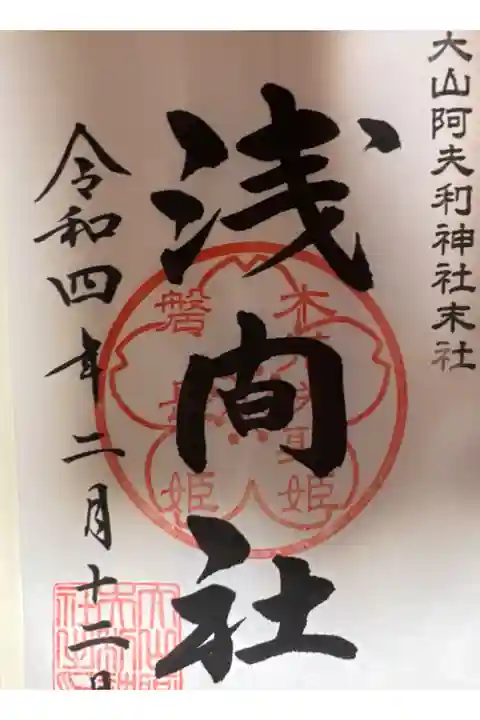 大山阿夫利神社末社
浅間社
木花咲耶姫
磐長姫
令和四年二月十二日